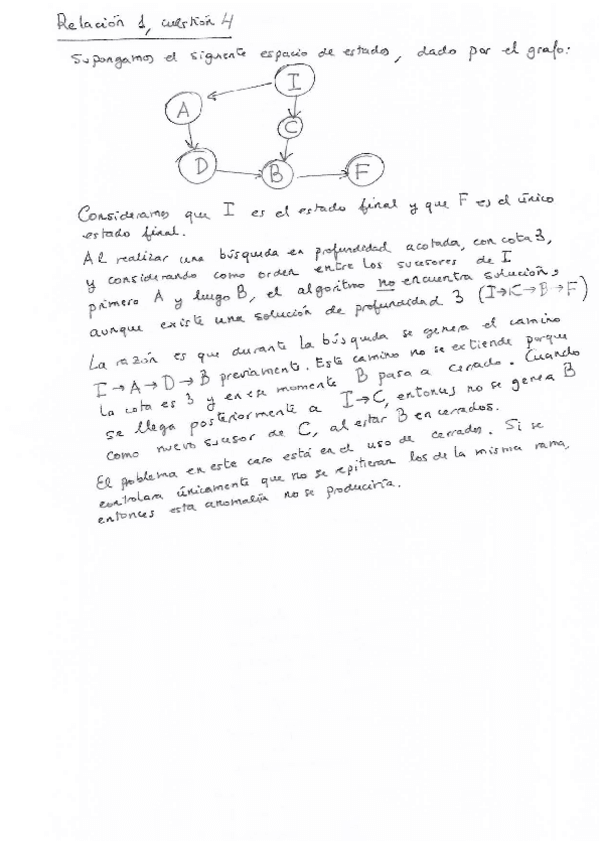 Relación 1, cuestión 4
Supongamos el siguiente espacio de estados, dado por el grafo:
I
A
C
D
B
F
Consideramos que I es el estado final y que F es el único
estado final.
Al realizar una búsqueda en profundidad acotada, con cota 3,
y considerando como orden entre los sucesores de I
primero A y luego B, el algoritmo no encuentra solución,
aunque existe una solución de profundidad 3 (I→C→B→F)
La razón es que durante la búsqueda se genera el camino
I→A→D→B previamente. Este camino no se extiende porque
la cota es 3 y en ese momento B pasa a cerrado. Cuando
se llega posteriormente a I→C, entonces no se genera B
como nuevo sucesor de C, al estar B en cerrados.
El problema en este caso está en el uso de cerrados. Si se
controlara únicamente que no se repitieran los de la misma rama,
entonces esta anomalía no se produciría.